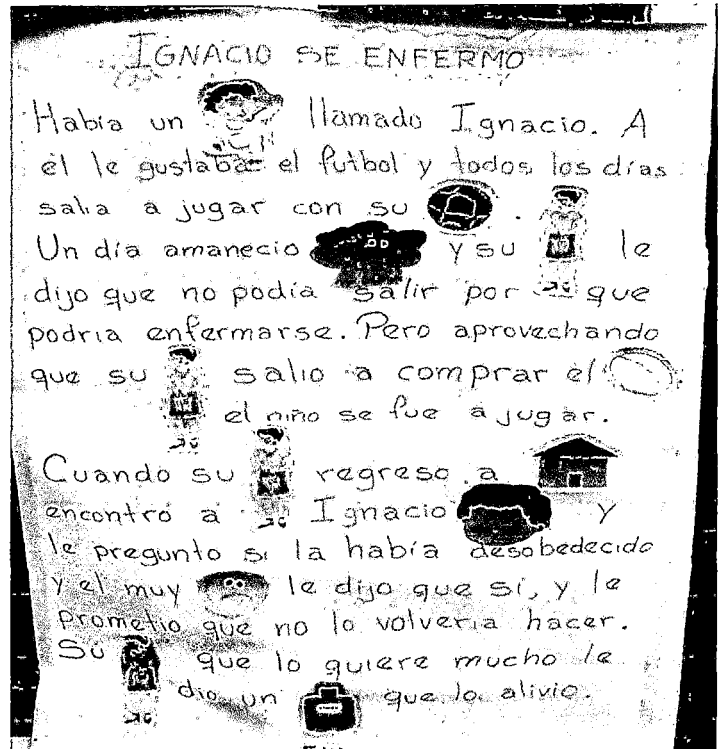 IGNACIO SE ENFERMO
Había un llamado Ignacio. A
él le gustaba el futbol y todos los días
salia a jugar con su .
Un día amanecio y su le
dijo que no podía salir por que
podria enfermarse. Pero aprovechando
que su salio a comprar el
el niño se fue a jugar.
Cuando su regreso a
encontró a Ignacio y
le pregunto si la había desobedecido
y el muy le dijo que si, y le
prometio que no lo volveria hacer.
Su que lo quiere mucho le
dio un que lo alivio.